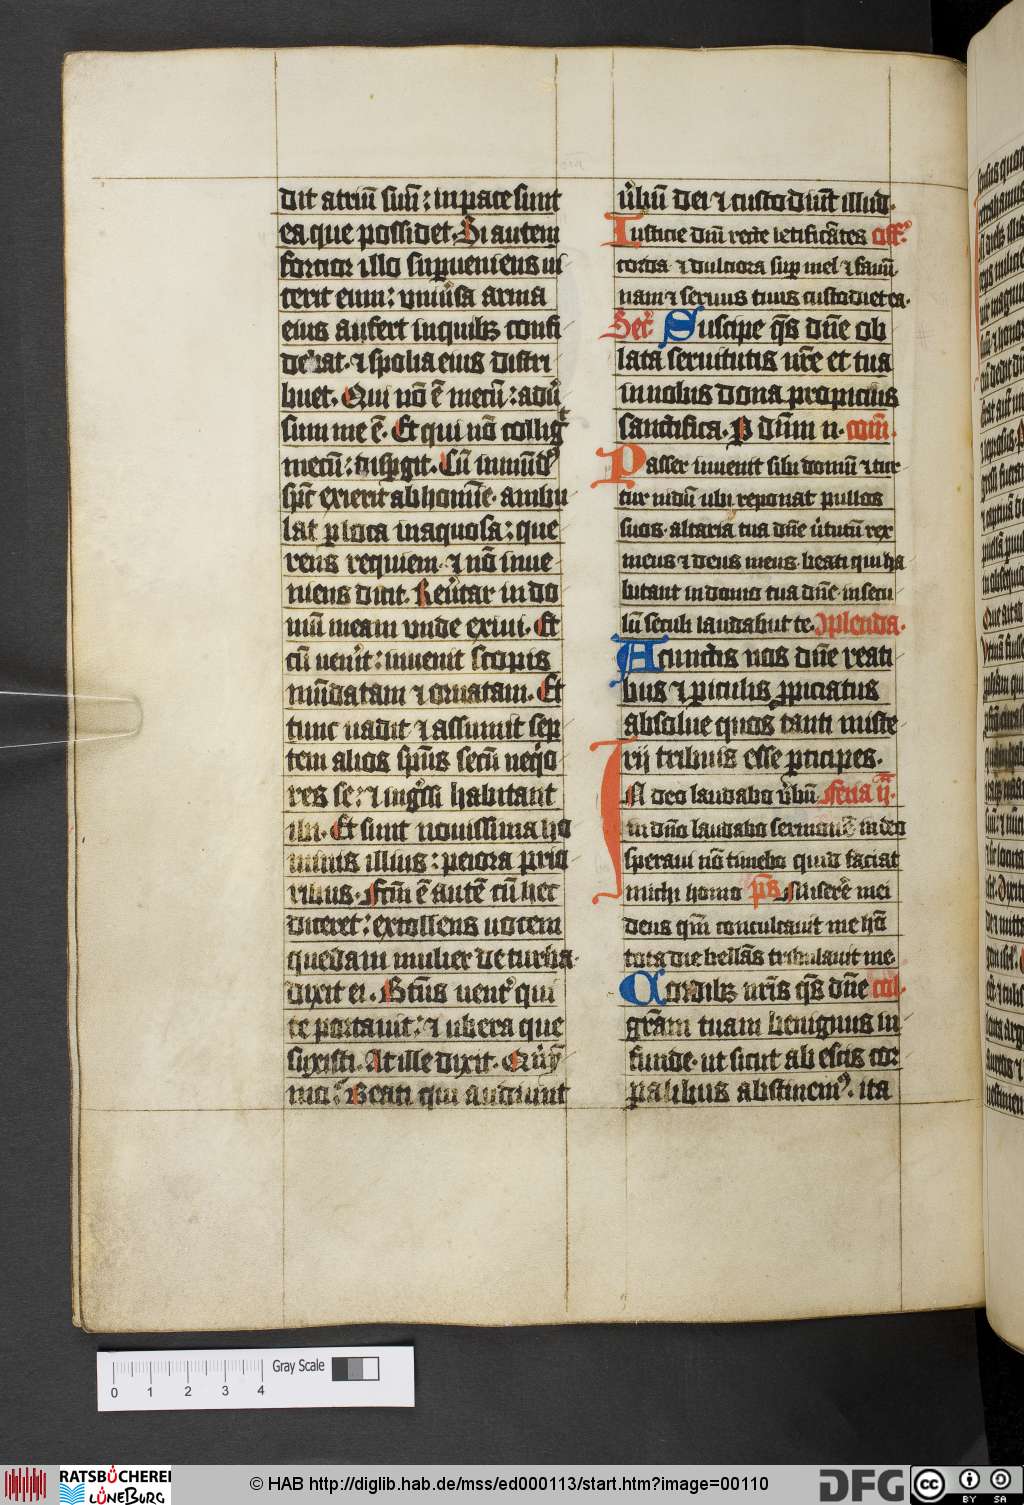 dit atriū suū: in pace sunt
ea que possidet. Si autem
fortior illo supueniens vi
cerit eum: vniūsa arma
eius aufert in quibꝫ confi
debat. ⁊ spolia eius distri
buet. Qui nō ē mecū: adū
sum me ē. Et qui nō colliḡt
mecū: dispgit. Cū inmūdꝰ
sp̄c exierit ab homīe. ambu
lat p loca inaquosa: que
rens requiem. ⁊ nō inue
niens dicit. Reūtar in do
mū meam vnde exiui. Et
cū venīt: inuenit scopis
mūdatam ⁊ ornatam. Et
tunc uadit ⁊ assumit sep
tem alios sp̄us secū neq̇o
res se: ⁊ ing̃ssi habitant
ibi. Et sunt nouissima ho
minis illius: peiora prio
ribus. Fctm̄ ē autē cū hec
diceret: extollens uocem
quedam mulier de turba.
dixit ei. Btūs uent̃ qui
te portauit: ⁊ ubera que
suxisti. At ille dixit. Quīy
mo: Beati qui audiunt
ūbū dei ⁊ custodiūt illud.
Iusticie dn̄i recte letificātes off̄.
corda ⁊ dulciora sup mel ⁊ fauū
nam ⁊ seruus tuus custodiet ea.
Secr̄. Suscipe qs̄ dn̄e ob
lata seruitutis nr̄e et tua
in nobis dona propicius
sanctifica. P dn̄m n. com̄.
Passer inuenit sibi domū ⁊ tur
tur nidū ubi reponat pullos
suos. altaria tua dn̄e ūtutū rex
meus ⁊ deus meus. beati qui ha
bitant in domo tua dn̄e. in secu
lū seculi laudabūt te. 9plenda.
A cunctis nos dn̄e reati
bus ⁊ piculis ppiciatus
absolue quos tanti miste
rij tribuis esse pticipes.
IN deo laudabo ūbū feria ij.
in dn̄o laudabo sermonē in deo
speraui nō timebo quid faciat
michi homo ps̄ Miserē mei
deus qm̄ conculcauit me hō
tota die bellās tribulauit me.
Cordibꝫ nr̄is qs̄ dn̄e col.
gr̄am tuam benignus in
funde. ut sicut ab escis cor
palibus abstinemꝰ. ita
0 1 2 3 4 Gray Scale
RATSBÜCHEREI
LÜNEBURG
© HAB http://diglib.hab.de/mss/ed000113/start.htm?image=00110
DFG
cc BY SA